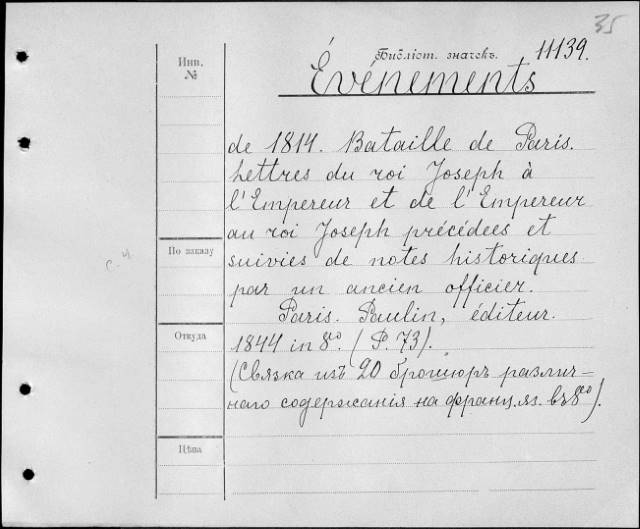 35
Инв.
№
Библіот. значекъ. 11139.
Événements
de 1814. Bataille de Paris.
Lettres du roi Joseph à
l'Empereur et de l'Empereur
au roi Joseph précédees et
По заказу
suivies de notes historiques
par un ancien officier.
Paris. Paulin, éditeur.
Откуда
1844 in 8º. (P. 73).
(Связка изъ 20 брошюръ различ-
наго содержанія на франц. яз. въ 8º).
Цѣна